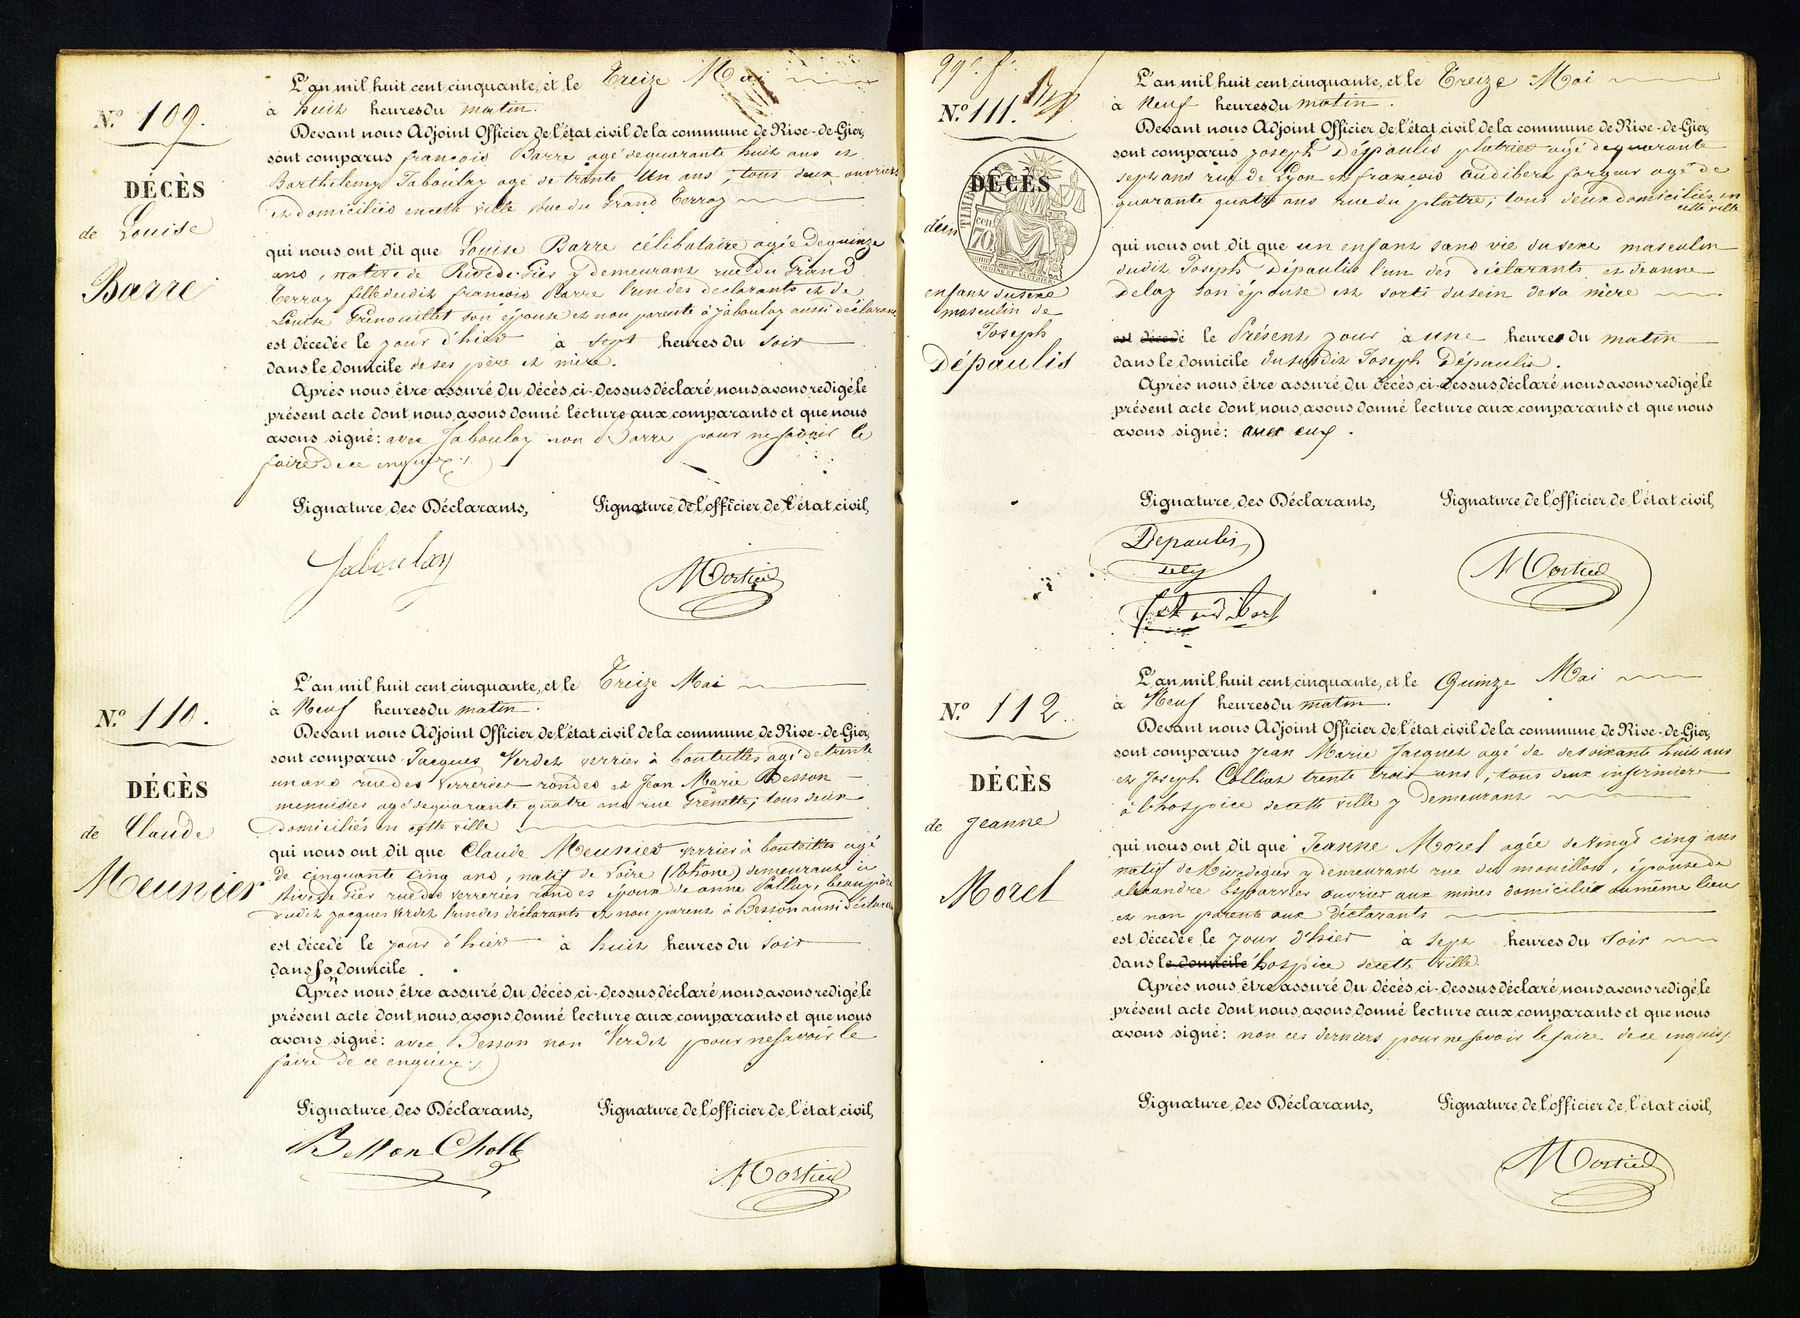 L'an mil huit cent cinquante, et le Treize Mai
à huit heures du matin.
N.º 109.
Devant nous Adjoint Officier de l'état civil de la commune de Rive-de-Gier,
sont comparus françois Barre agé de quarante huit ans et
DÉCÈS
Barthelemy Jaboulay agé de trente un ans, tous deux ouvriers
et domiciliés en cette ville rue du Grand Terray
de Louise
Barre
qui nous ont dit que Louise Barre célibataire agée de quinze
ans, native de Rive de Gier y demeurant rue du Grand
Terray fille dudit françois Barre l'un des declarants et de
Louise Grenouillet son épouse et non parente à Jaboulay aussi déclarant
est décedée le jour d'hier à sept heures du soir
dans le domicile de ses père et mère.
Après nous être assuré du décès ci-dessus déclaré nous avons redigé le
présent acte dont nous avons donné lecture aux comparants et que nous
avons signé: avec Jaboulay non Barre pour ne savoir le
faire de ce enquis.
Signature des Déclarants, Signature de l'officier de l'état civil,
Jaboulay
Mortier
L'an mil huit cent cinquante, et le Treize Mai
à Neuf heures du matin.
N.º 110.
Devant nous Adjoint Officier de l'état civil de la commune de Rive-de-Gier,
sont comparus Jacques Verdet verrier à bouteilles agé de trente
DÉCÈS
un ans rue des verreries rondes et Jean Marie Besson
menuisier agé de quarante quatre ans rue Grenette; tous deux
domiciliés en cette ville
de Claude
Meunier
qui nous ont dit que Claude Meunier verrier à bouteilles agé
de cinquante cinq ans, natif de Loire (Rhone) demeurant à
Rive de Gier rue des verreries rondes époux de anne Pallay, beau père
dudit Jacques Verdet l'un des déclarants et non parent à Besson aussi déclarant
est décedé le jour d'hier à huit heures du soir
dans son domicile.
Après nous être assuré du décès ci-dessus déclaré nous avons redigé le
présent acte dont nous avons donné lecture aux comparants et que nous
avons signé: avec Besson non Verdet pour ne savoir le
faire de ce enquis.
Signature des Déclarants, Signature de l'officier de l'état civil,
Mortier
99e f.
L'an mil huit cent cinquante, et le Treize Mai
à Neuf heures du matin.
N.º 111.
Devant nous Adjoint Officier de l'état civil de la commune de Rive-de-Gier,
sont comparus Joseph Dépaulis platrier agé de quarante
DÉCÈS
sept ans rue de Lyon et françois Audibert forgeur agé de
quarante quatre ans rue du plâtre; tous deux domiciliés en
cette ville
TIMBRE
70
enfant du sexe
masculin de
Joseph
Dépaulis
qui nous ont dit que un enfant sans vie du sexe masculin
dudit Joseph Dépaulis l'un des déclarants et Jeanne
Delay son épouse est sorti du sein de sa mère
est décedé le Présent jour à une heure du matin
dans le domicile du susdit Joseph Dépaulis.
Après nous être assuré du décès ci-dessus déclaré nous avons redigé le
présent acte dont nous avons donné lecture aux comparants et que nous
avons signé: avec eux.
Signature des Déclarants, Signature de l'officier de l'état civil,
Depaulis
Mortier
L'an mil huit cent cinquante, et le Quinze Mai
à Neuf heures du matin.
N.º 112.
Devant nous Adjoint Officier de l'état civil de la commune de Rive-de-Gier,
sont comparus Jean Marie Jacquet agé de soixante huit ans
DÉCÈS
et Joseph Colliat trente trois ans; tous deux infirmiers
à l'hospice de cette ville y demeurant
de Jeanne
Morel
qui nous ont dit que Jeanne Morel agée de vingt cinq ans
natif de Rive de gier y demeurant rue du mouillon, épouse de
alexandre Esparvier ouvrier aux mines domicilié au même lieu
et non parente aux déclarants
est décedée le jour d'hier à sept heures du soir
dans le domicile l'hospice de cette ville.
Après nous être assuré du décès ci-dessus déclaré nous avons redigé le
présent acte dont nous avons donné lecture aux comparants et que nous
avons signé: non ces derniers pour ne savoir le faire de ce enquis.
Signature des Déclarants, Signature de l'officier de l'état civil,
Mortier